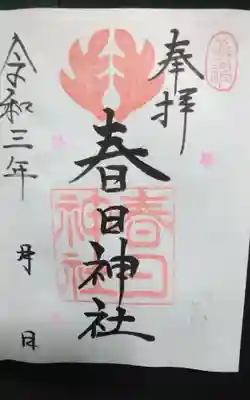 奉拝
春日神社
春日
神社
令和三年 月 日